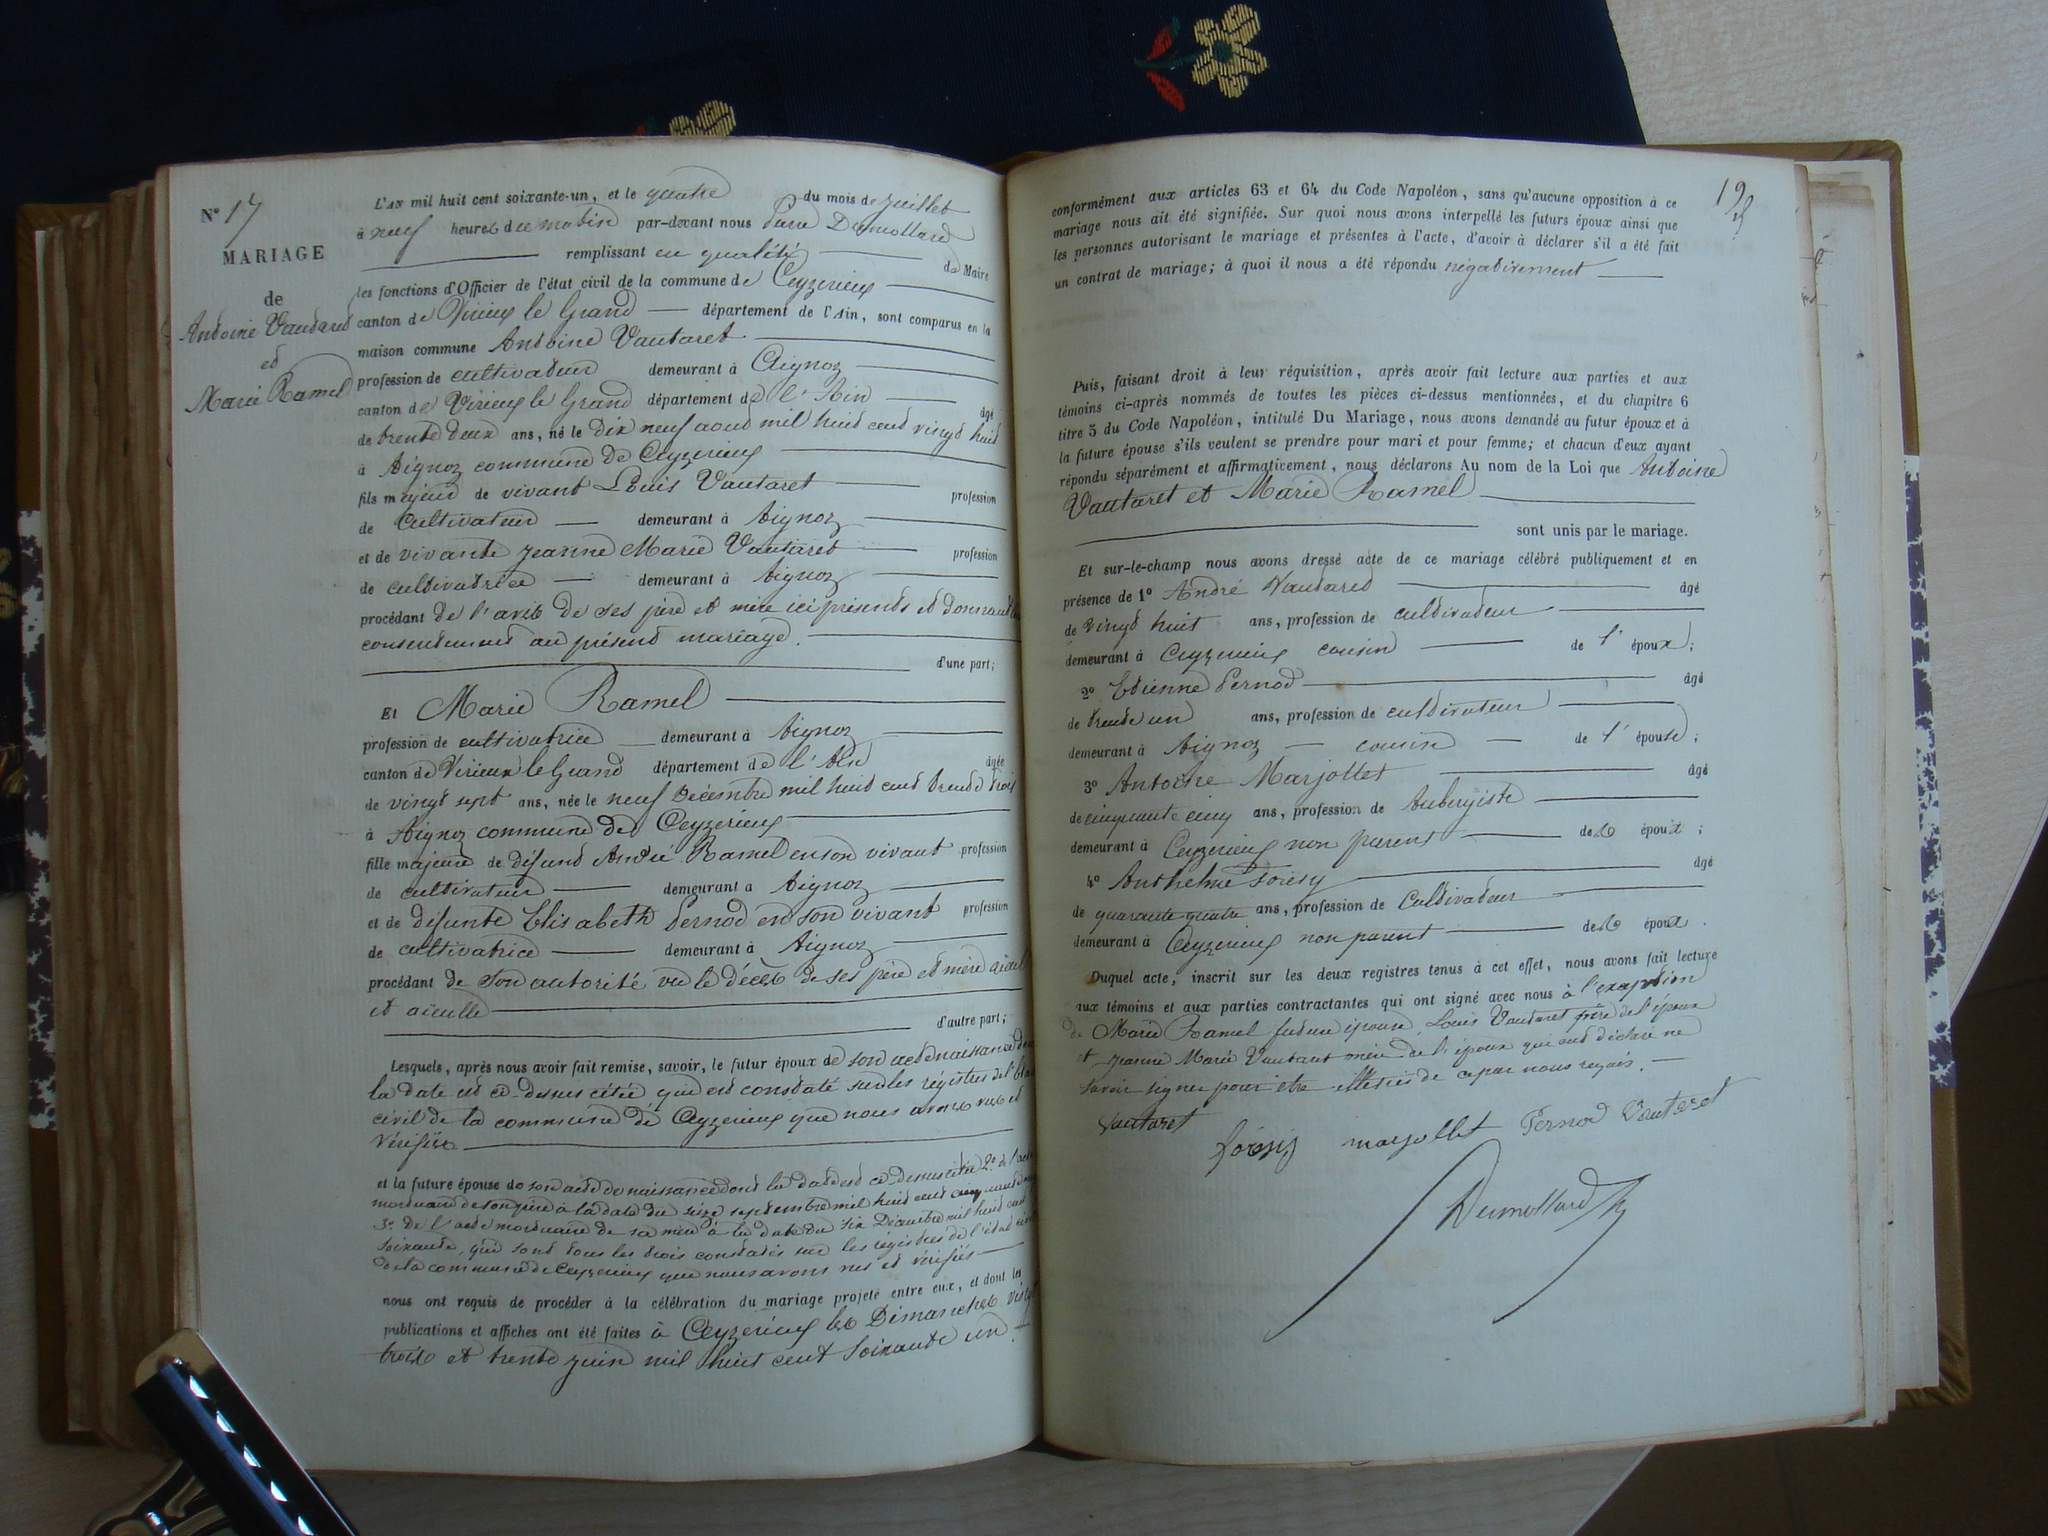 N° 17
MARIAGE
de
Antoine Vautaret
et
Marie Ramel
L'AN mil huit cent soixante-un, et le quatre du mois de juillet
à neuf heures du matin par-devant nous Pierre Dumollard
remplissant en qualité de Maire
les fonctions d'Officier de l'état civil de la commune de Ceyzerieux
canton de Virieux le Grand département de l'Ain, sont comparus en la
maison commune Antoine Vautaret
profession de cultivateur demeurant à Aignoz
canton de Virieux le Grand département de l'Ain âgé
de trente deux ans, né le dix neuf aout mil huit cent vingt huit
à Aignoz commune de Ceyzerieux
fils majeur de vivant Louis Vautaret profession
de cultivateur demeurant à Aignoz
et de vivante Jeanne Marie Vautaret profession
de cultivatrice demeurant à Aignoz
procédant de l'avis de ses père et mère ici présents et donnant
consentement au présent mariage.
d'une part;
Et Marie Ramel
profession de cultivatrice demeurant à Aignoz
canton de Virieux le Grand département de l'Ain âgée
de vingt sept ans, née le neuf Décembre mil huit cent trente trois
à Aignoz commune de Ceyzerieux
fille majeure de défunt André Ramel en son vivant profession
de cultivateur demeurant à Aignoz
et de défunte Elisabeth Pernod en son vivant profession
de cultivatrice demeurant à Aignoz
procédant de son autorité vu le décès de ses père et mère aieul
et aieulle
d'autre part;
Lesquels, après nous avoir fait remise, savoir, le futur époux de son acte de naissance dont
la date est ci-dessus citée qui est constaté sur les régistres de l'état
civil de la commune de Ceyzerieux que nous avons vus et
vérifiés
et la future épouse de son acte de naissance dont la date est ci-dessus citée 2° de l'acte
mortuaire de son père à la date du seize septembre mil huit cent cinquante
3° de l'acte mortuaire de sa mère à la date du six Décembre mil huit cent
soixante, qui sont tous les trois constatés sur les régistres de l'état civil
de la commune de Ceyzerieux que nous avons vus et vérifiés
nous ont requis de procéder à la célébration du mariage projeté entre eux, et dont les
publications et affiches ont été faites à Ceyzerieux les Dimanches vingt
trois et trente juin mil huit cent soixante un.
19
conformément aux articles 63 et 64 du Code Napoléon, sans qu'aucune opposition à ce
mariage nous ait été signifiée. Sur quoi nous avons interpellé les futurs époux ainsi que
les personnes autorisant le mariage et présentes à l'acte, d'avoir à déclarer s'il a été fait
un contrat de mariage; à quoi il nous a été répondu négativement
Puis, faisant droit à leur réquisition, après avoir fait lecture aux parties et aux
témoins ci-après nommés de toutes les pièces ci-dessus mentionnées, et du chapitre 6
titre 5 du Code Napoléon, intitulé Du Mariage, nous avons demandé au futur époux et à
la future épouse s'ils veulent se prendre pour mari et pour femme; et chacun d'eux ayant
répondu séparément et affirmativement, nous déclarons Au nom de la Loi que Antoine
Vautaret et Marie Ramel
sont unis par le mariage.
Et sur-le-champ nous avons dressé acte de ce mariage célébré publiquement et en
présence de 1° André Vautaret âgé
de vingt huit ans, profession de cultivateur
demeurant à Ceyzerieux cousin de l'époux;
2° Etienne Pernod âgé
de trente un ans, profession de cultivateur
demeurant à Aignoz cousin de l'épouse;
3° Antoine Marjollet âgé
de cinquante cinq ans, profession de Aubergiste
demeurant à Ceyzerieux non parent des époux;
4° Anthelme âgé
de quarante quatre ans, profession de Cultivateur
demeurant à Ceyzerieux non parent des époux.
Duquel acte, inscrit sur les deux registres tenus à cet effet, nous avons fait lecture
aux témoins et aux parties contractantes qui ont signé avec nous à l'exception
de Marie Ramel future épouse, Louis Vautaret père de l'époux
et Jeanne Marie Vautaret mère de l'époux qui ont déclaré ne
savoir signer pour être de ce par nous requis.
Vautaret
marjollet Pernod Vautaret
Dumollard